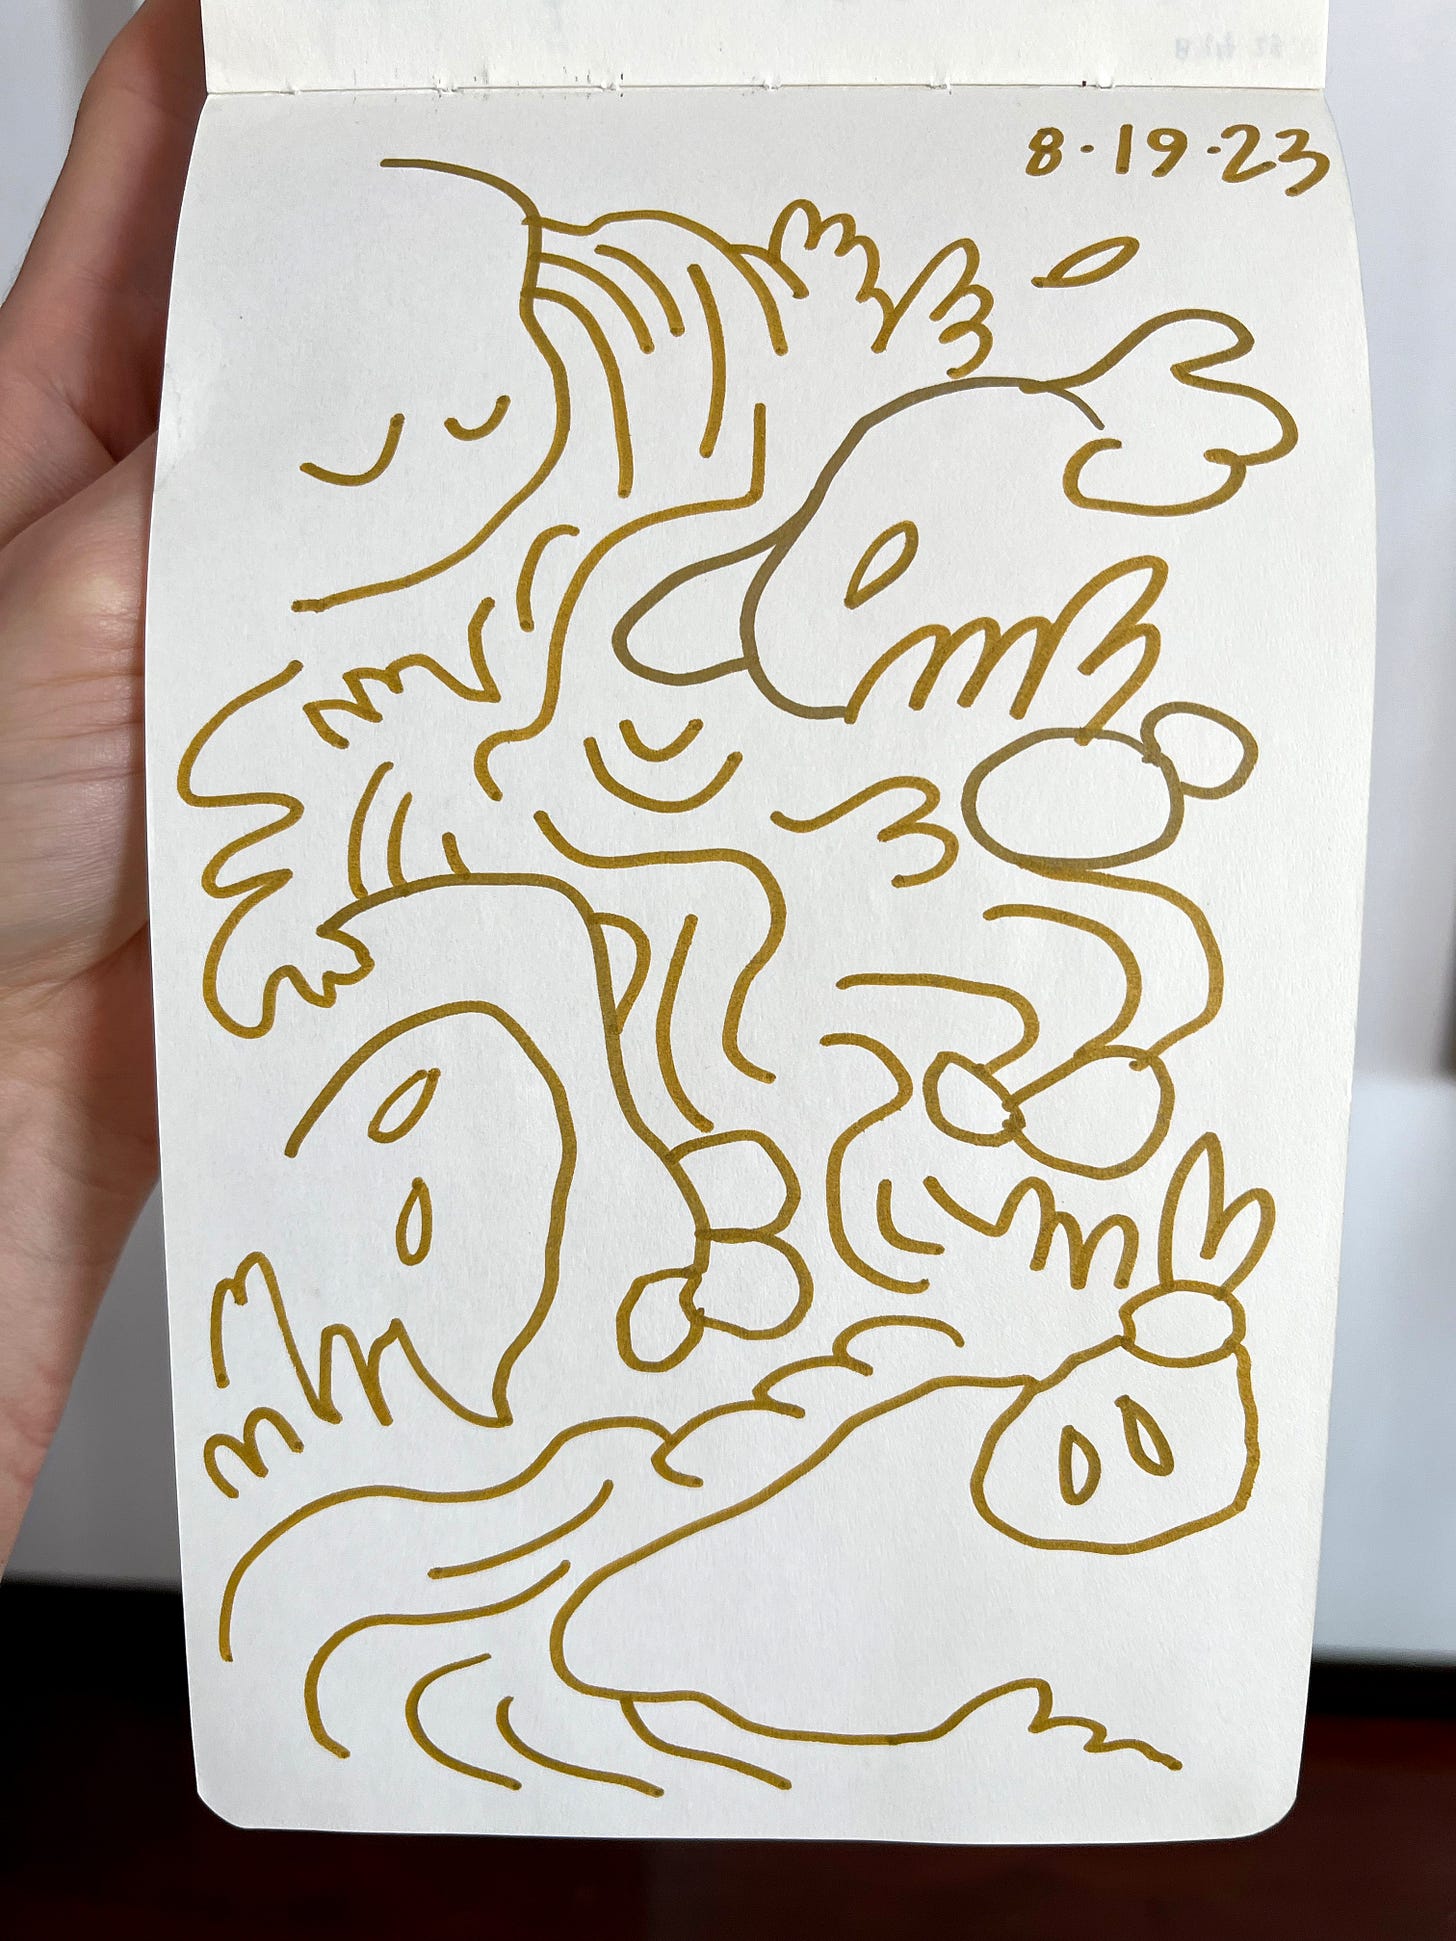 8·19·23